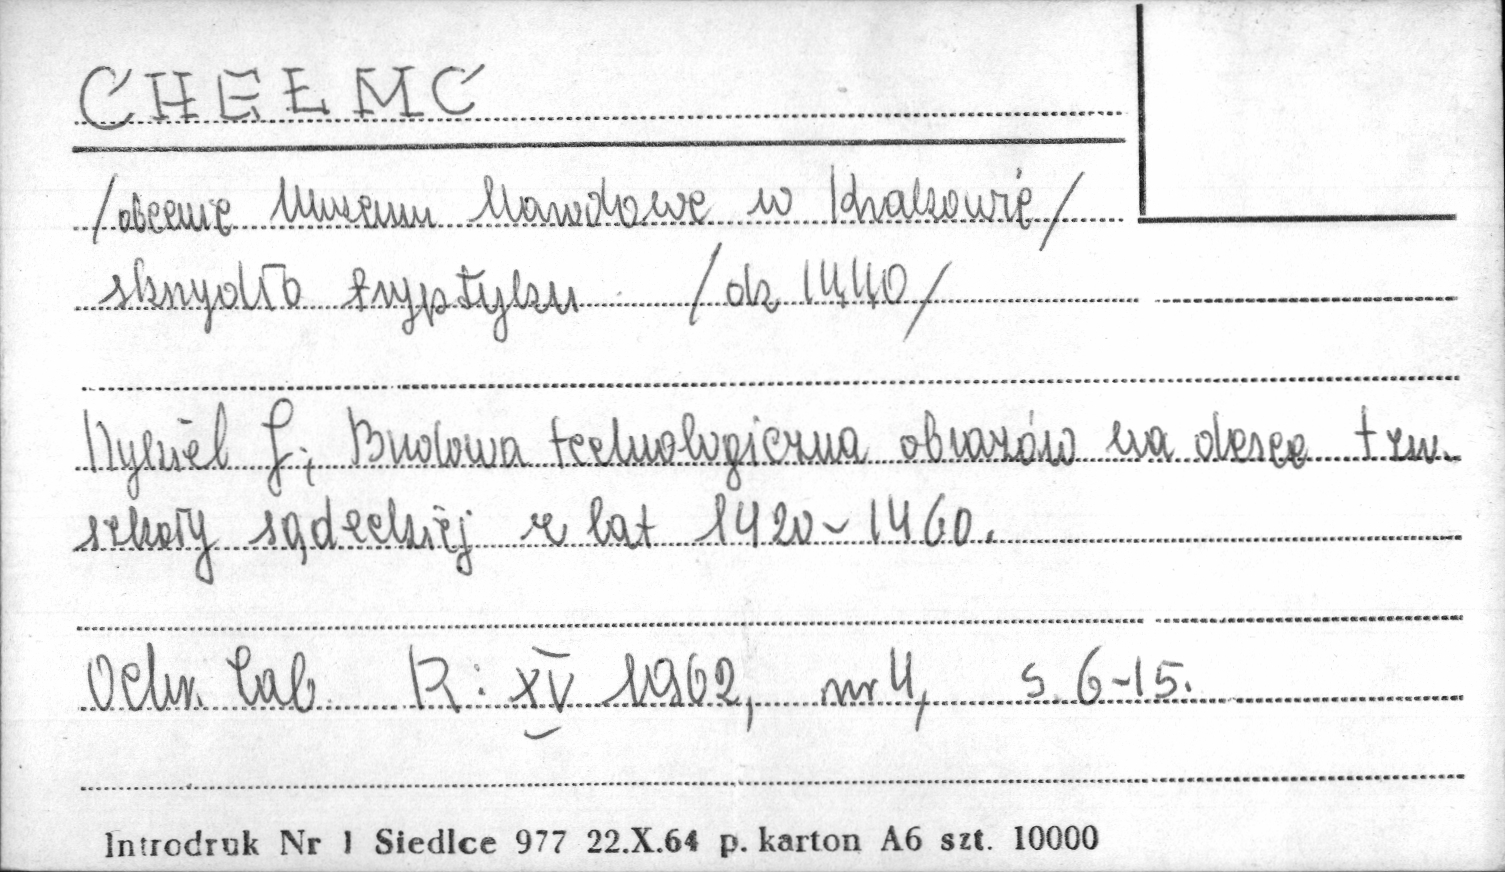 CHEŁMC
/obecnie Muzeum Narodowe w Krakowie/
skrzydło tryptyku /ok 1440/
Nykiel J; Budowa technologiczna obrazów na desce tzw.
szkoły sądeckiej z lat 1420-1460.
Ochr. Zab. R: XV 1962, nr 4, s. 6-15.
Introdruk Nr 1 Siedlce 977 22.X.64 p. karton A6 szt. 10000